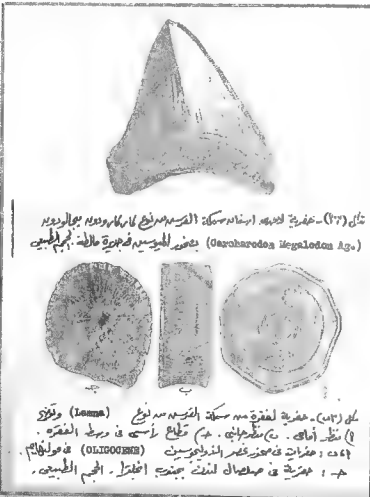 شكل (٢٢) - حفرية لاحدى اسنان سمكة القرش من نوع كاركارودون ميجالودون
(Carcharodon Megalodon Ag.) بصخور الميوسين في جزيرة مالطة. الحجم الطبيعى
جـ ب
شكل (٢٣) - حفرية لفقرة من سمكة القرش من نوع (Lamna) وترى
أ) منظر أمامى . ب) منظر جانبى . جـ) قطاع رأسى فى وسط الفقرة .
حفرية فى صخور عصر الاوليجوسين (OLIGOCENE) فى
جـ : حفرية فى صلصال لندن بجنوب انجلترا . الحجم الطبيعى .